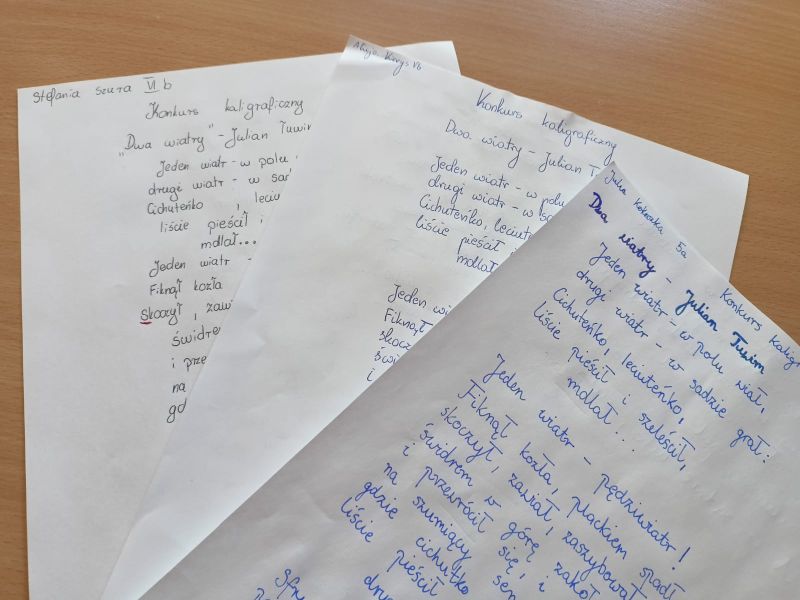 Stefania Szura VI b
Konkurs kaligraficzny
"Dwa wiatry" - Julian Tuwim
Jeden wiatr - w polu
drugi wiatr - w sad
Cichuteńko, leciu
liście pieścił i
mdlał...
Jeden wiatr -
Fiknął kozła
Skoczył, zawi
świdre
i prze
na
gd
Alicja Korys Vb
Konkurs kaligraficzny
Dwa wiatry - Julian T
Jeden wiatr - w polu
drugi wiatr - w sa
Cichuteńko, leciute
liście pieścił
mdlał
Jeden wi
Fiknął
skocz
świ
i
Julia 5a Konkurs kaligr
Dwa wiatry - Julian Tuwim
Jeden wiatr - w polu wiał,
drugi wiatr - w sadzie grał:
Cichuteńko, leciuteńko,
liście pieścił i szeleścił,
mdlał...
Jeden wiatr - pędziwiatr!
Fiknął kozła, plackiem spadł
skoczył, zawiał, zaszybował
świdrem w górę zakoł
i przewrócił się, i
na szumiący sen
gdzie cichutko
liście pieścił
dru
Sfru